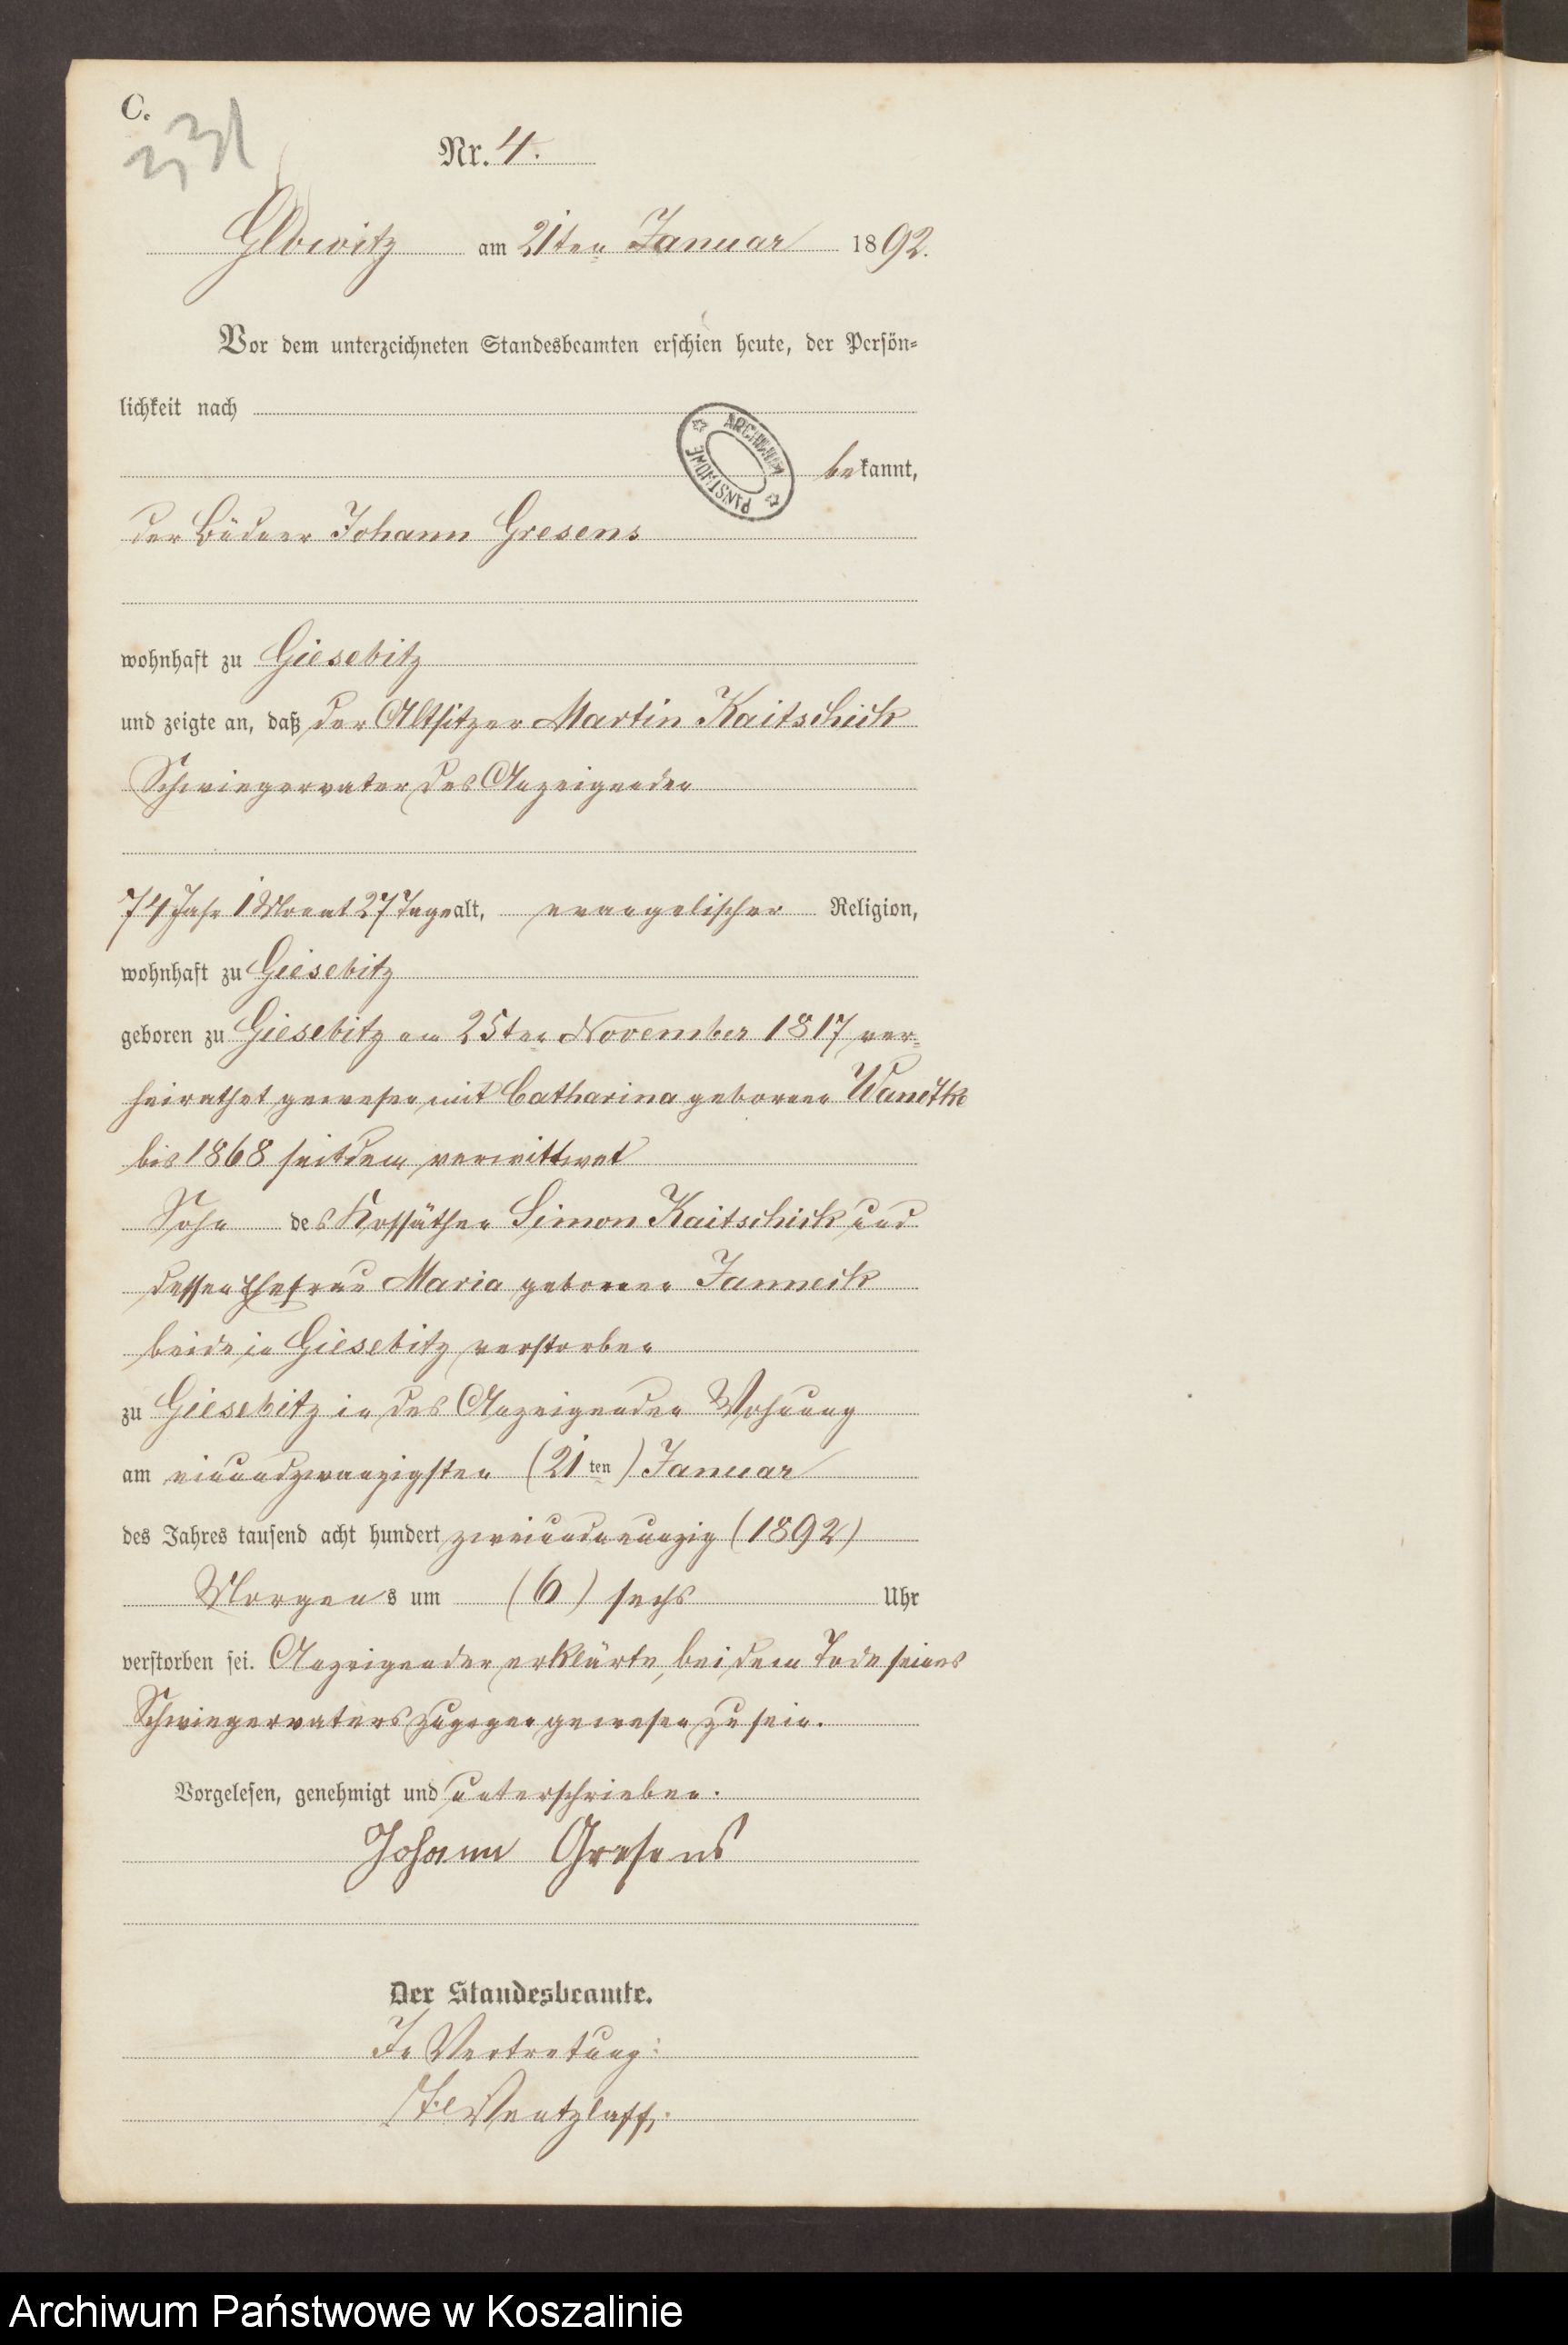 C.
331
Nr. 4.
Glowitz am 21ten Januar 1892.
Vor dem unterzeichneten Standesbeamten erschien heute, der Persön-
lichkeit nach
bekannt,
ARCHIWUM PAŃSTWOWE
der Büdner Johann Gresens
wohnhaft zu Giesebitz
und zeigte an, daß der Altsitzer Martin Kaitschick
Schwiegervater des Anzeigenden
74 Jahr 1 Monat 27 Tage alt, evangelischer Religion,
wohnhaft zu Giesebitz
geboren zu Giesebitz am 25ten November 1817 ver-
heirathet gewesen mit Catharina geborene
bis 1868 seitdem verwittwet
Sohn des Kossäthen Simon Kaitschick und
dessen Ehefrau Maria geborene Janneck
beide in Giesebitz verstorben
zu Giesebitz in des Anzeigenden Wohnung
am einundzwanzigsten (21ten) Januar
des Jahres tausend acht hundert zweiundneunzig (1892)
Morgens um (6) sechs Uhr
verstorben sei. Anzeigender erklärte, bei dem Tode seines
Schwiegervaters zugegen gewesen zu sein.
Vorgelesen, genehmigt und unterschrieben.
Johann Gresens
Der Standesbeamte.
In Vertretung:
Wentzlaff.
Archiwum Państwowe w Koszalinie